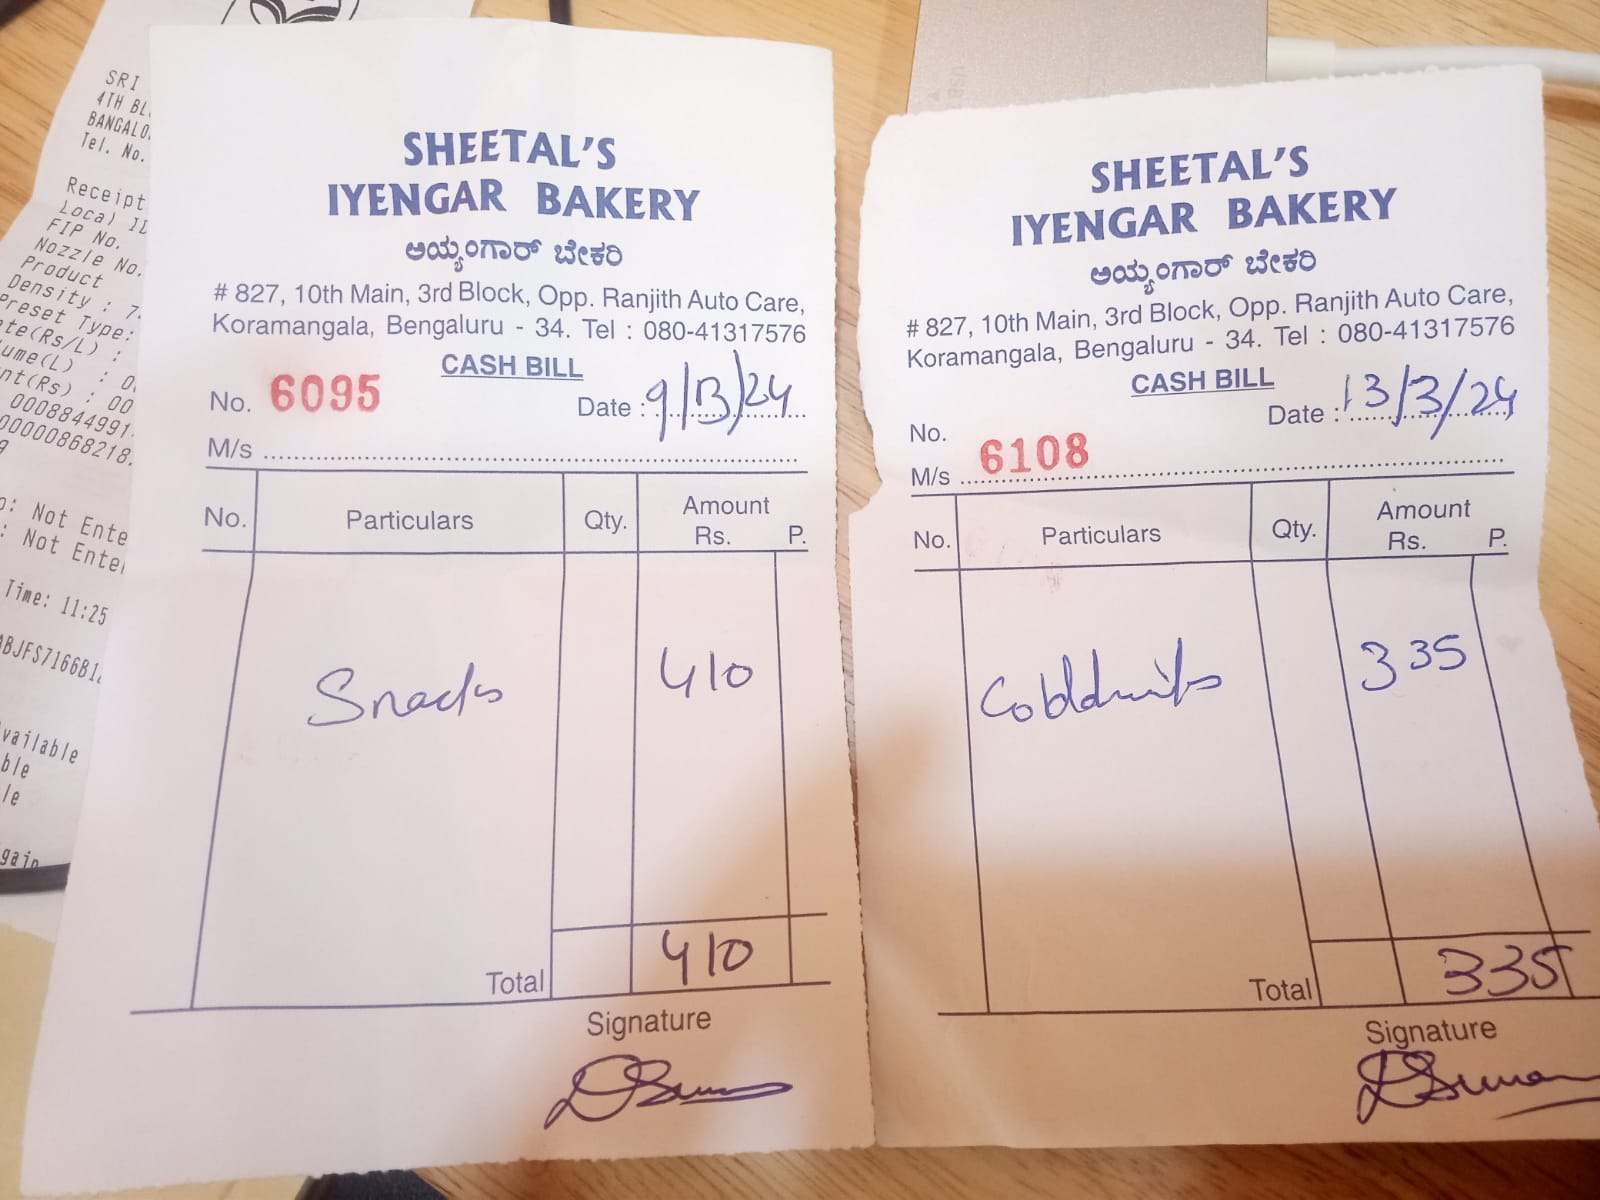 SRI
4TH BL
BANGALO
Tel. No.
Receipt
Local ID
FIP No.
Nozzle No.
Product
Density : 7
Preset Type:
ate(Rs/L) :
ume(L) : 0
nt(Rs) : 00
0008844991
00000868218
o: Not Ente
: Not Enter
Time: 11:25
ABJFS7166B1
vailable
ble
le
gain
SHEETAL'S
IYENGAR BAKERY
ಅಯ್ಯಂಗಾರ್ ಬೇಕರಿ
# 827, 10th Main, 3rd Block, Opp. Ranjith Auto Care,
Koramangala, Bengaluru - 34. Tel : 080-41317576
CASH BILL
No. 6095 Date : 9/13/24
M/s
No. Particulars Qty. Amount
Rs. P.
Snacks 410
Total 410
Signature
SHEETAL'S
IYENGAR BAKERY
ಅಯ್ಯಂಗಾರ್ ಬೇಕರಿ
# 827, 10th Main, 3rd Block, Opp. Ranjith Auto Care,
Koramangala, Bengaluru - 34. Tel : 080-41317576
CASH BILL
No. 6108 Date : 13/3/24
M/s
No. Particulars Qty. Amount
Rs. P.
Colddrinks 335
Total 335
Signature